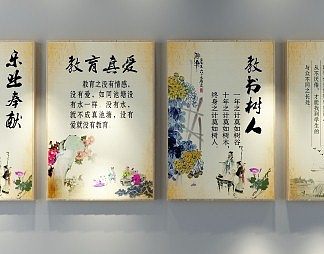 乐业奉献
教育真爱
教育之没有情感，
没有爱，如同池塘没
有水一样。没有水，
就不成真池塘，没有
爱就没有教育
教书树人
一年之计莫如树谷
十年之计莫如树木，
终身之计莫如树人